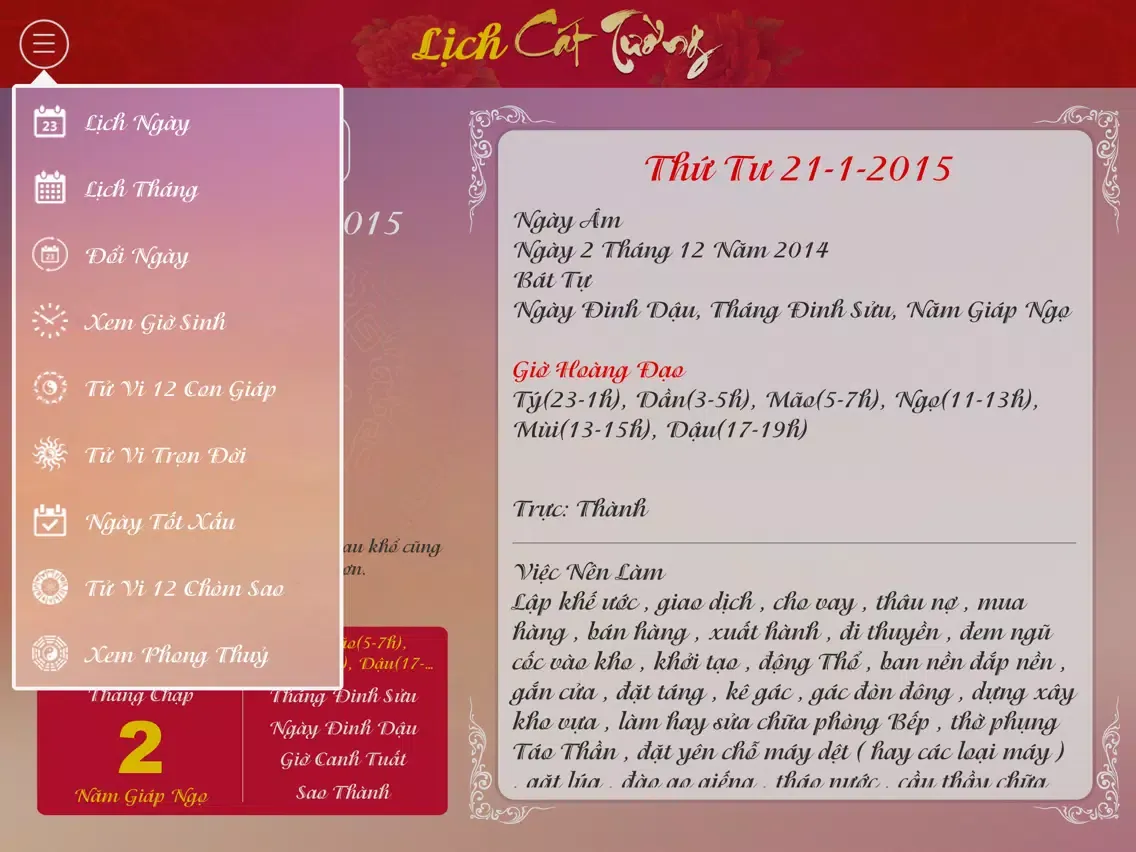 Lịch Cát Tường
Lịch Ngày
Lịch Tháng
Đổi Ngày
Xem Giờ Sinh
Tử Vi 12 Con Giáp
Tử Vi Trọn Đời
Ngày Tốt Xấu
Tử Vi 12 Chòm Sao
Xem Phong Thuỷ
015
au khổ cũng
ơn.
(5-7h),
), Dậu(17-...
Tháng Chạp
2
Năm Giáp Ngọ
Tháng Đinh Sửu
Ngày Đinh Dậu
Giờ Canh Tuất
Sao Thành
Thứ Tư 21-1-2015
Ngày Âm
Ngày 2 Tháng 12 Năm 2014
Bát Tự
Ngày Đinh Dậu, Tháng Đinh Sửu, Năm Giáp Ngọ
Giờ Hoàng Đạo
Tý(23-1h), Dần(3-5h), Mão(5-7h), Ngọ(11-13h),
Mùi(13-15h), Dậu(17-19h)
Trực: Thành
Việc Nên Làm
Lập khế ước , giao dịch , cho vay , thâu nợ , mua
hàng , bán hàng , xuất hành , đi thuyền , đem ngũ
cốc vào kho , khởi tạo , động Thổ , ban nền đắp nền ,
gắn cửa , đặt táng , kê gác , gác đòn đông , dựng xây
kho vựa , làm hay sửa chữa phòng Bếp , thờ phụng
Táo Thần , đặt yên chỗ máy dệt ( hay các loại máy )
, gặt lúa , đào ao giếng , tháo nước , cầu thầy chữa